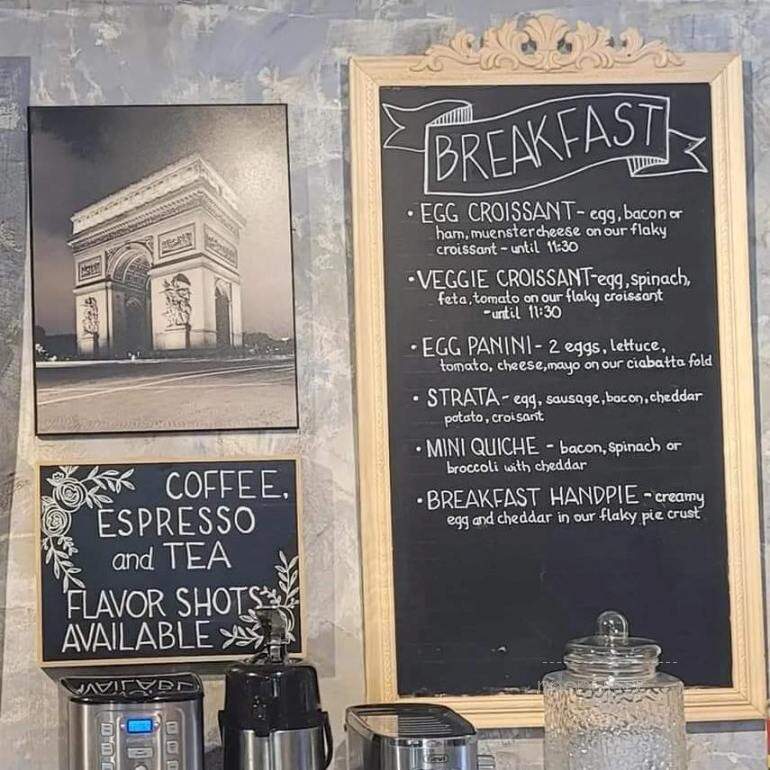 BREAKFAST
• EGG CROISSANT - egg, bacon or
ham, muenster cheese on our flaky
croissant - until 11:30
• VEGGIE CROISSANT - egg, spinach,
feta, tomato on our flaky croissant
- until 11:30
• EGG PANINI - 2 eggs, lettuce,
tomato, cheese, mayo on our ciabatta fold
• STRATA - egg, sausage, bacon, cheddar
potato, croisant
• MINI QUICHE - bacon, spinach or
broccoli with cheddar
• BREAKFAST HANDPIE - creamy
egg and cheddar in our flaky pie crust
COFFEE,
ESPRESSO
and TEA
FLAVOR SHOTS
AVAILABLE